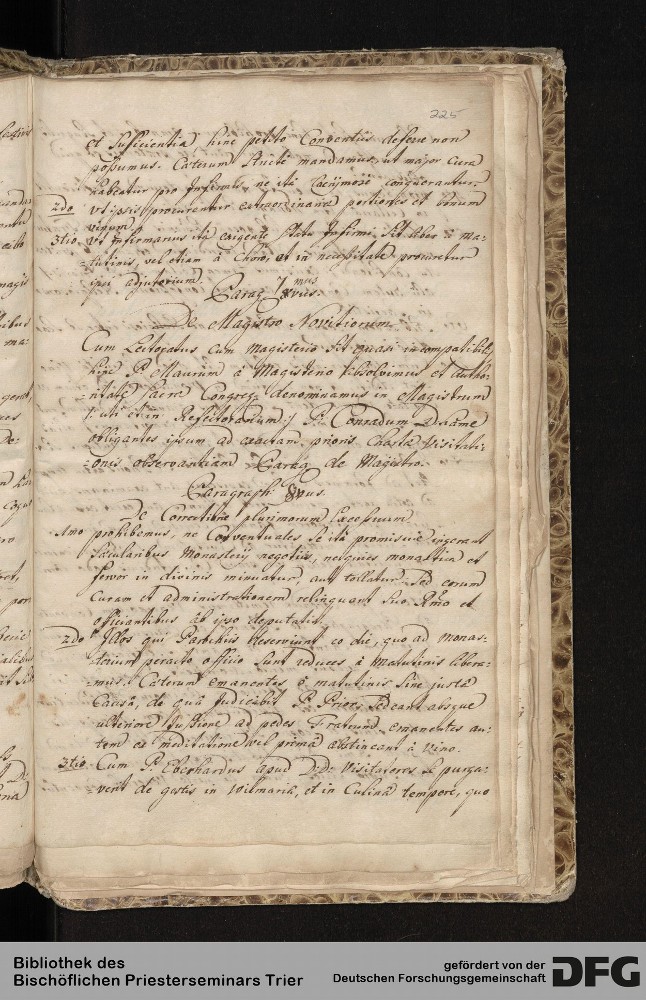 225
et Sufficientia, hinc petito Conventûs deferre non
possumus. Caeterum strictè mandamus, ut major Cura
habeatur pro Infirmis, ne ità lacrymosè conquerantur.
2do Ut ipsis procurentur extraordinariae portiones et bonum
vinum.
3tio. Ut Infirmarius ità exigente statu Infirmi sit liber à ma-
-tutinis, vel etiam à Choro, et in necessitate procuretur
ipsi adjutorium.
Parag. 7mus
De Magistro Novitiorum.
Cum Lectoratus cum Magisterio sit quasi incompatibilis
hinc P. Maurum à Magisterio absolvimus et autho-
-ritate sacrae Congreg. denominamus in Magistrum
/: uti et in Refectorarium :/ P. Conradum
obligantes ipsum ad exactam prioris Chartae Visitati-
-onis observantiam Parag. de Magistro.
Paragraph. 8vus.
De Correctione plurimorum Excessuum.
1mo prohibemus, ne Conventuales se ità promiscuè ingerant
saecularibus Monasterij negotiis, ne quies monastica et
fervor in divinis minuatur, aut tollatur, sed eorum
curam et administrationem relinquant suo Rmo et
officiantibus ab ipso deputatis.
2do Illos qui Parochiis deserviunt eo die, quo ad Monas-
-terium peracto officio sunt reduces à Matutinis libera-
-mus. Caeterum emanentes è matutinis sine justâ
Causâ, de quâ judicabit P. Prior, sedeant absque
ulteriore jussione ad pedes Fratrum, emanentes au-
tem ex meditatione vel primâ abstineant à vino.
3tio. Cum P. Eberhardus apud D: D: Visitatores se purga-
-verit de gestis in Wilmaria, et in Culinâ tempore, quo
Bibliothek des
Bischöflichen Priesterseminars Trier
gefördert von der
Deutschen Forschungsgemeinschaft
DFG